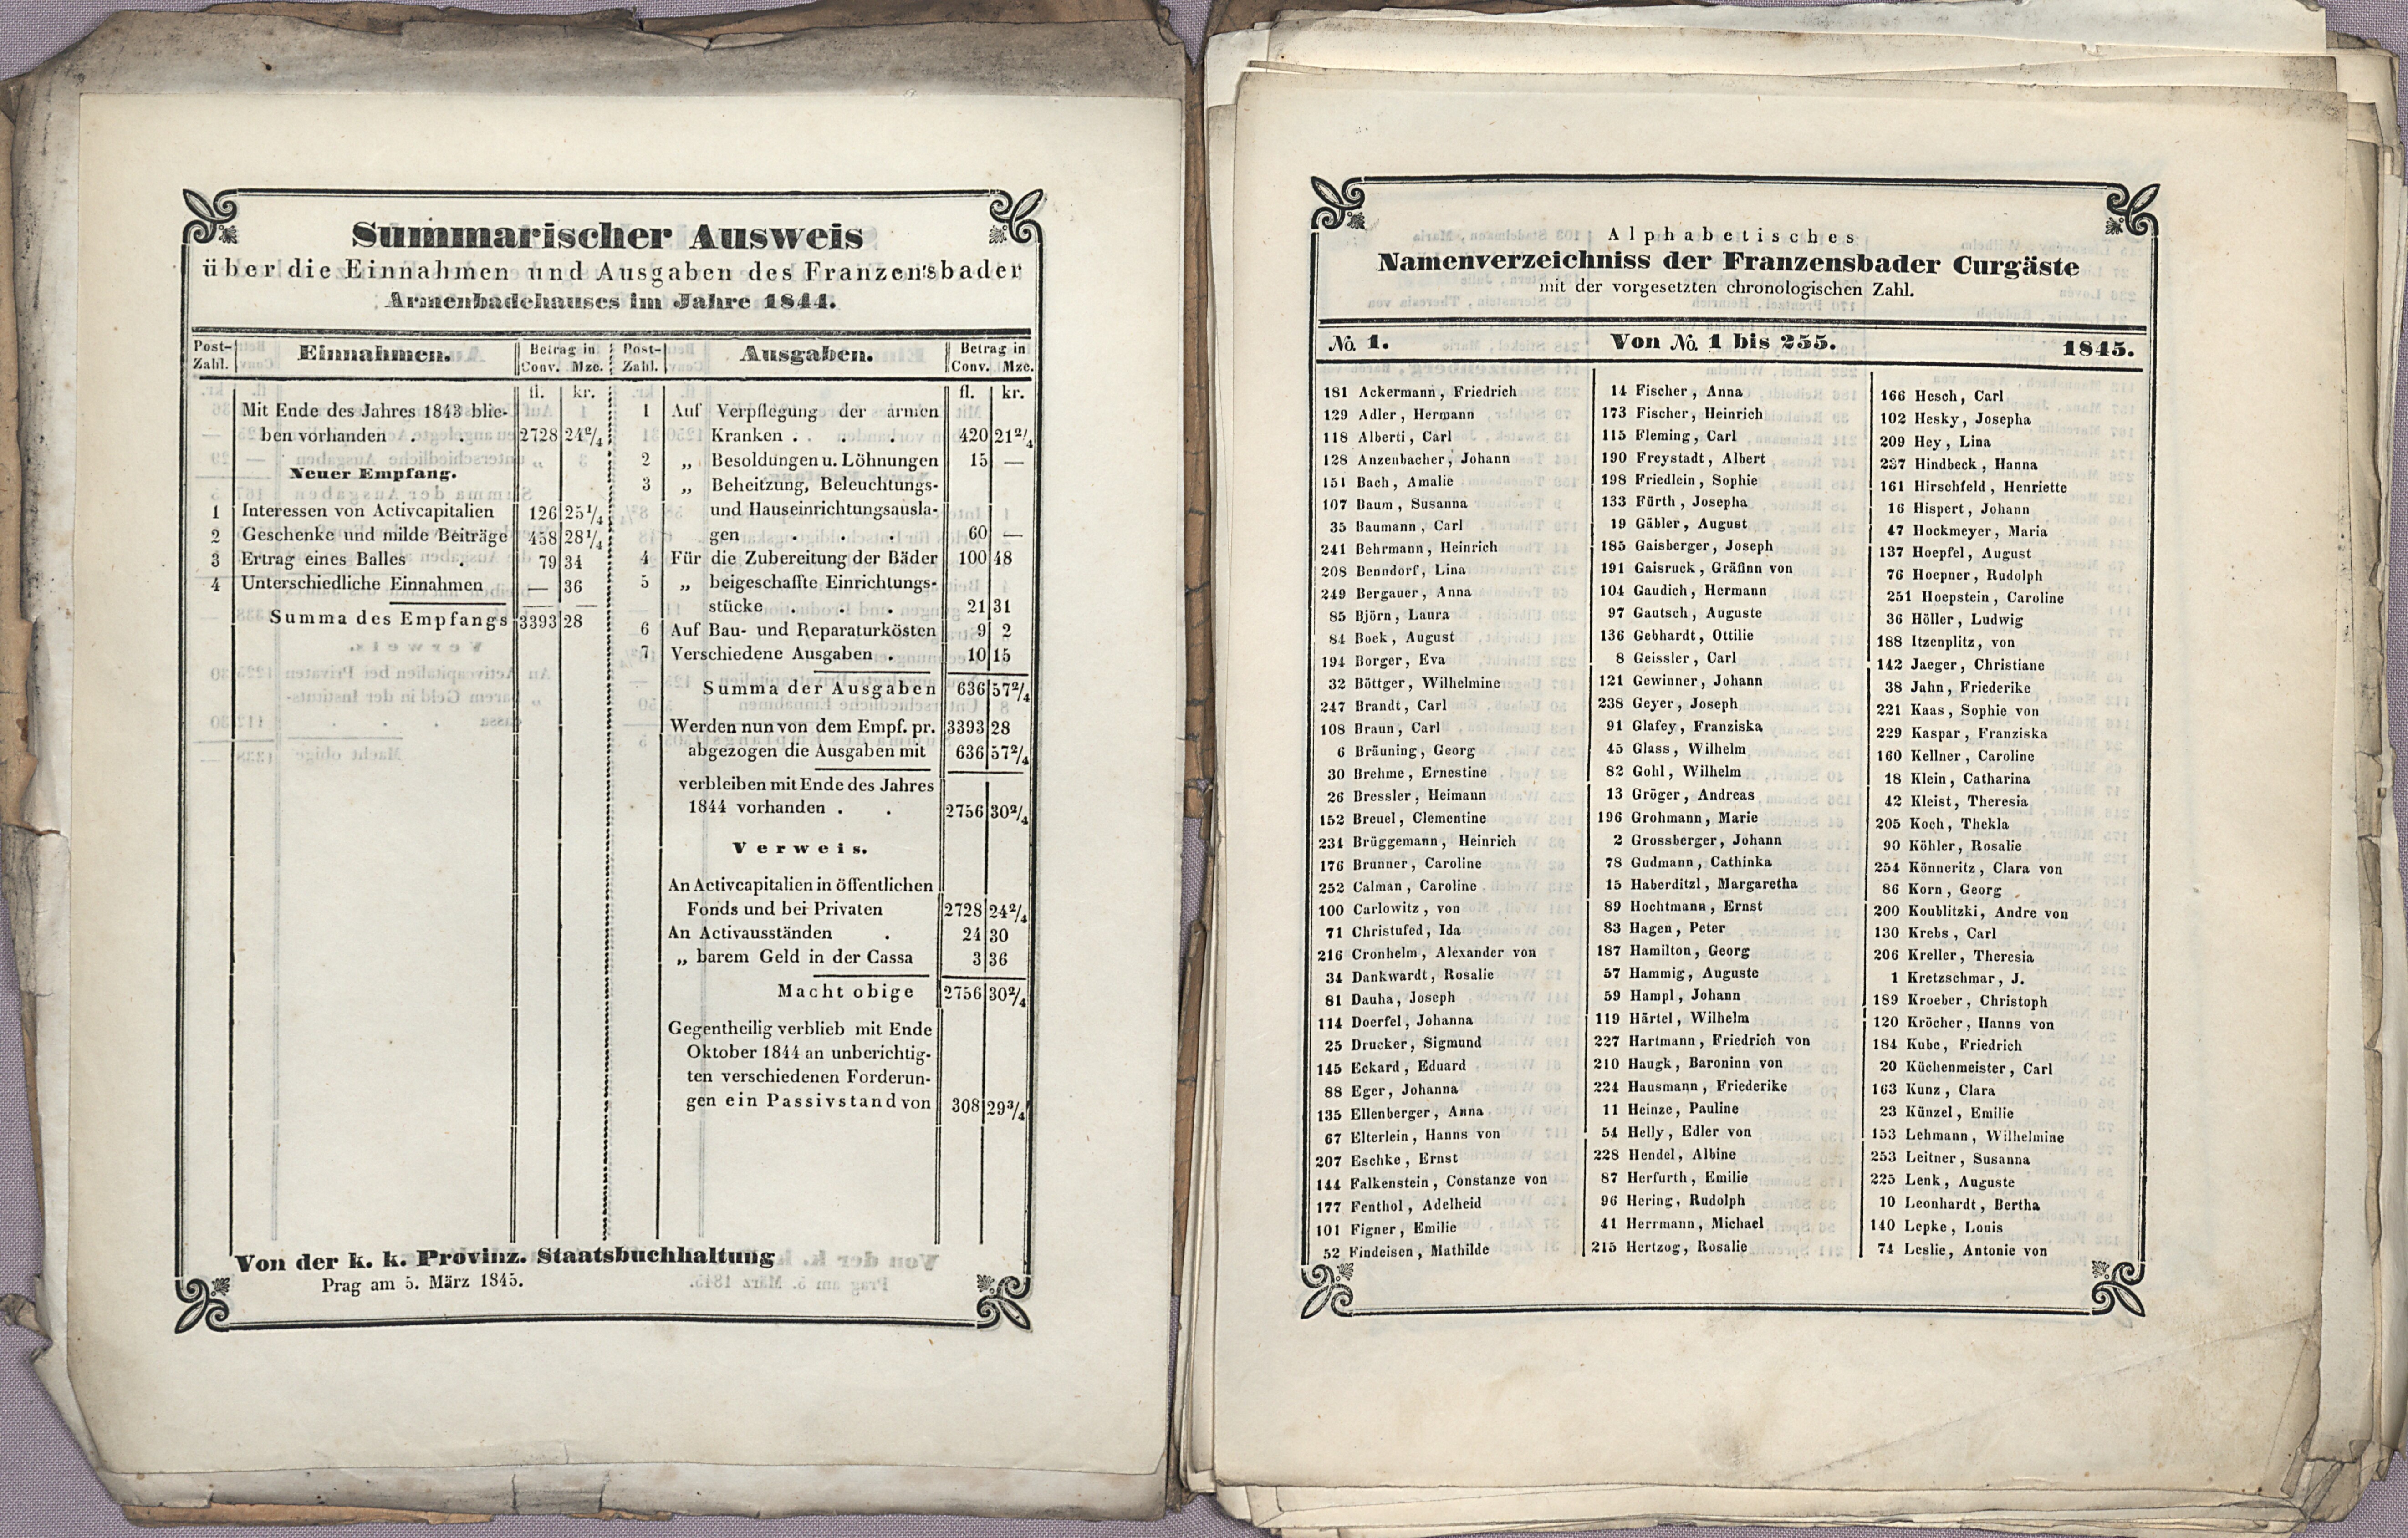 Summarischer Ausweis
über die Einnahmen und Ausgaben des Franzensbader
Armenbadehauses im Jahre 1844.
Post-Zahl. Einnahmen. Betrag in Conv. Mze.
fl. kr.
Mit Ende des Jahres 1843 blie-
ben vorhanden . . 2728 24 2/4
Neuer Empfang.
1 Interessen von Activcapitalien 126 25 1/4
2 Geschenke und milde Beiträge 458 28 1/4
3 Ertrag eines Balles . 79 34
4 Unterschiedliche Einnahmen — 36
Summa des Empfangs 3393 28
Post-Zahl. Ausgaben. Betrag in Conv. Mze.
fl. kr.
1 Auf Verpflegung der armen
Kranken . . . 420 21 2/4
2 „ Besoldungen u. Löhnungen 15 —
3 „ Beheitzung, Beleuchtungs-
und Hauseinrichtungsausla-
gen . . . 60 —
4 Für die Zubereitung der Bäder 100 48
5 „ beigeschaffte Einrichtungs-
stücke . . . 21 31
6 Auf Bau- und Reparaturkösten 9 2
7 Verschiedene Ausgaben . 10 15
Summa der Ausgaben 636 57 2/4
Werden nun von dem Empf. pr. 3393 28
abgezogen die Ausgaben mit 636 57 2/4
verbleiben mit Ende des Jahres
1844 vorhanden . . 2756 30 2/4
Verweis.
An Activcapitalien in öffentlichen
Fonds und bei Privaten 2728 24 2/4
An Activausständen . 24 30
„ barem Geld in der Cassa 3 36
Macht obige 2756 30 2/4
Gegentheilig verblieb mit Ende
Oktober 1844 an unberichtig-
ten verschiedenen Forderun-
gen ein Passivstand von 308 29 3/4
Von der k. k. Provinz. Staatsbuchhaltung
Prag am 5. März 1845.
Alphabetisches
Namenverzeichniss der Franzensbader Curgäste
mit der vorgesetzten chronologischen Zahl.
No. 1. Von No. 1 bis 255. 1845.
181 Ackermann, Friedrich
129 Adler, Hermann
118 Alberti, Carl
128 Anzenbacher, Johann
151 Bach, Amalie
107 Baum, Susanna
35 Baumann, Carl
241 Behrmann, Heinrich
208 Benndorf, Lina
249 Bergauer, Anna
85 Björn, Laura
84 Bock, August
194 Borger, Eva
32 Böttger, Wilhelmine
247 Brandt, Carl
108 Braun, Carl
6 Bräuning, Georg
30 Brehme, Ernestine
26 Bressler, Heimann
152 Breuel, Clementine
234 Brüggemann, Heinrich
176 Brunner, Caroline
252 Calman, Caroline
100 Carlowitz, von
71 Christufed, Ida
216 Cronhelm, Alexander von
34 Dankwardt, Rosalie
81 Dauha, Joseph
114 Doerfel, Johanna
25 Drucker, Sigmund
145 Eckard, Eduard
88 Eger, Johanna
135 Ellenberger, Anna
67 Elterlein, Hanns von
207 Eschke, Ernst
144 Falkenstein, Constanze von
177 Fenthol, Adelheid
101 Figner, Emilie
52 Findeisen, Mathilde
14 Fischer, Anna
173 Fischer, Heinrich
115 Fleming, Carl
190 Freystadt, Albert
198 Friedlein, Sophie
133 Fürth, Josepha
19 Gäbler, August
185 Gaisberger, Joseph
191 Gaisruck, Gräfinn von
104 Gaudich, Hermann
97 Gautsch, Auguste
136 Gebhardt, Ottilie
8 Geissler, Carl
121 Gewinner, Johann
238 Geyer, Joseph
91 Glafey, Franziska
45 Glass, Wilhelm
82 Gohl, Wilhelm
13 Gröger, Andreas
196 Grohmann, Marie
2 Grossberger, Johann
78 Gudmann, Cathinka
15 Haberditzl, Margaretha
89 Hochtmann, Ernst
83 Hagen, Peter
187 Hamilton, Georg
57 Hammig, Auguste
59 Hampl, Johann
119 Härtel, Wilhelm
227 Hartmann, Friedrich von
210 Haugk, Baroninn von
224 Hausmann, Friederike
11 Heinze, Pauline
54 Helly, Edler von
228 Hendel, Albine
87 Herfurth, Emilie
96 Hering, Rudolph
41 Herrmann, Michael
215 Hertzog, Rosalie
166 Hesch, Carl
102 Hesky, Josepha
209 Hey, Lina
237 Hindbeck, Hanna
161 Hirschfeld, Henriette
16 Hispert, Johann
47 Hockmeyer, Maria
137 Hoepfel, August
76 Hoepner, Rudolph
251 Hoepstein, Caroline
36 Höller, Ludwig
188 Itzenplitz, von
142 Jaeger, Christiane
38 Jahn, Friederike
221 Kaas, Sophie von
229 Kaspar, Franziska
160 Kellner, Caroline
18 Klein, Catharina
42 Kleist, Theresia
205 Koch, Thekla
90 Köhler, Rosalie
254 Könneritz, Clara von
86 Korn, Georg
200 Koublitzki, Andre von
130 Krebs, Carl
206 Kreller, Theresia
1 Kretzschmar, J.
189 Kroeber, Christoph
120 Kröcher, Hanns von
184 Kube, Friedrich
20 Küchenmeister, Carl
163 Kunz, Clara
23 Künzel, Emilie
153 Lehmann, Wilhelmine
253 Leitner, Susanna
225 Lenk, Auguste
10 Leonhardt, Bertha
140 Lepke, Louis
74 Leslie, Antonie von